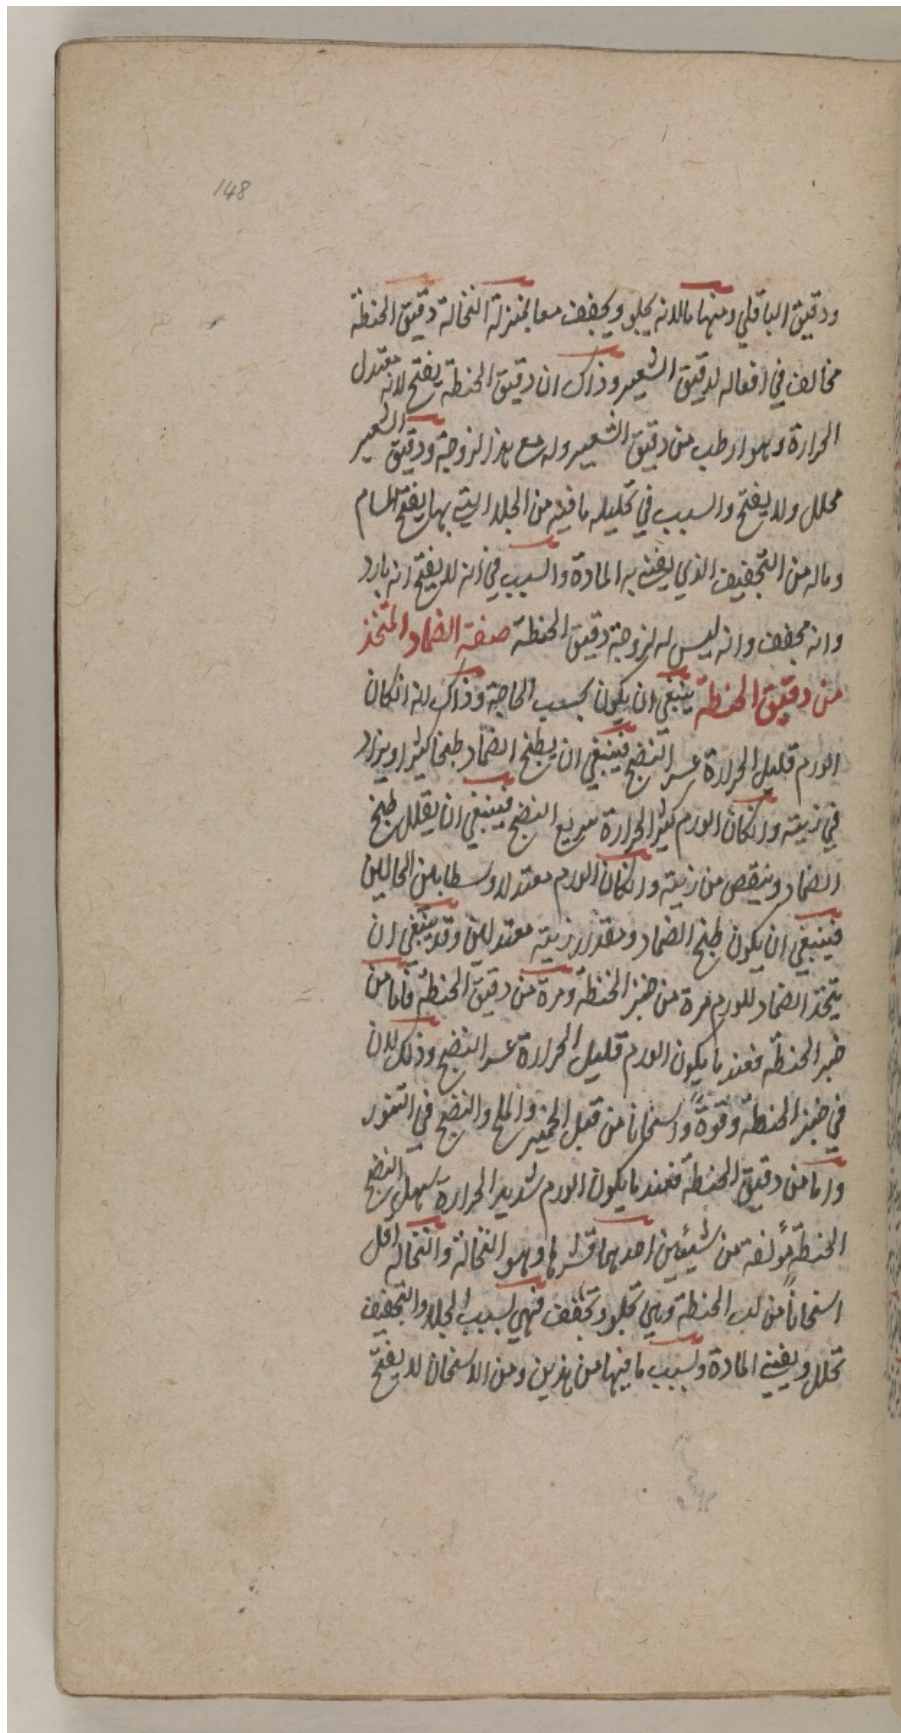 148
ودقيق الباقلي ومنها مالانه يجلو ويجفف معا بمنزلة النخالة دقيق الحنطة
مخالف في افعاله لدقيق الشعير وذاك ان دقيق الحنطة يفتح لانه معتدل
الحرارة وهو ارطب من دقيق الشعير وله مع هذا لزوجة ودقيق الشعير
محلل ولا يفتح والسبب في تحليله ما فيه من الجلا التي بها يفتح المسام
وماله من التجفيف الذي يفني به المادة والسبب في انه لا يفتح انه بارد
وانه مجفف وانه ليس له لزوجة دقيق الحنطة صفة الضماد المتخذ
من دقيق الحنطة ينبغي ان يكون بحسب الحاجة وذاك انه انكان
الورم قليل الحرارة عسر النضج فينبغي ان يطبخ الضماد طبخا كثيرا ويزاد
في زيته وانكان الورم كثير الحرارة سريع النضج فينبغي ان يقلل طبخ
الضماد وينقص من زيته وانكان الورم معتدلا وسطا بين الحالين
فينبغي ان يكون طبخ الضماد ومقدار زيته معتدلين وقد ينبغي ان
يتخذ الضماد للورم مرة من خبز الحنطة ومرة من دقيق الحنطة فاما من
خبز الحنطة فعند ما يكون الورم قليل الحرارة عسر النضج وذلك لان
في خبز الحنطة وقوةً واسخانا من قبل الخمير والملح والنضج في التنور
واما من دقيق الحنطة فعند ما يكون الورم شديد الحرارة سهل النضج
الحنطة مؤلفة من شيئين احدهما قشرها وهو النخالة والنخالة اقل
اسخاناً من لب الحنطة وهي تجلو وتجفف فهي بسبب الجلا والتجفيف
تحلل ويفني المادة وبسبب ما فيها من هذين ومن الاسخان لا يفتح